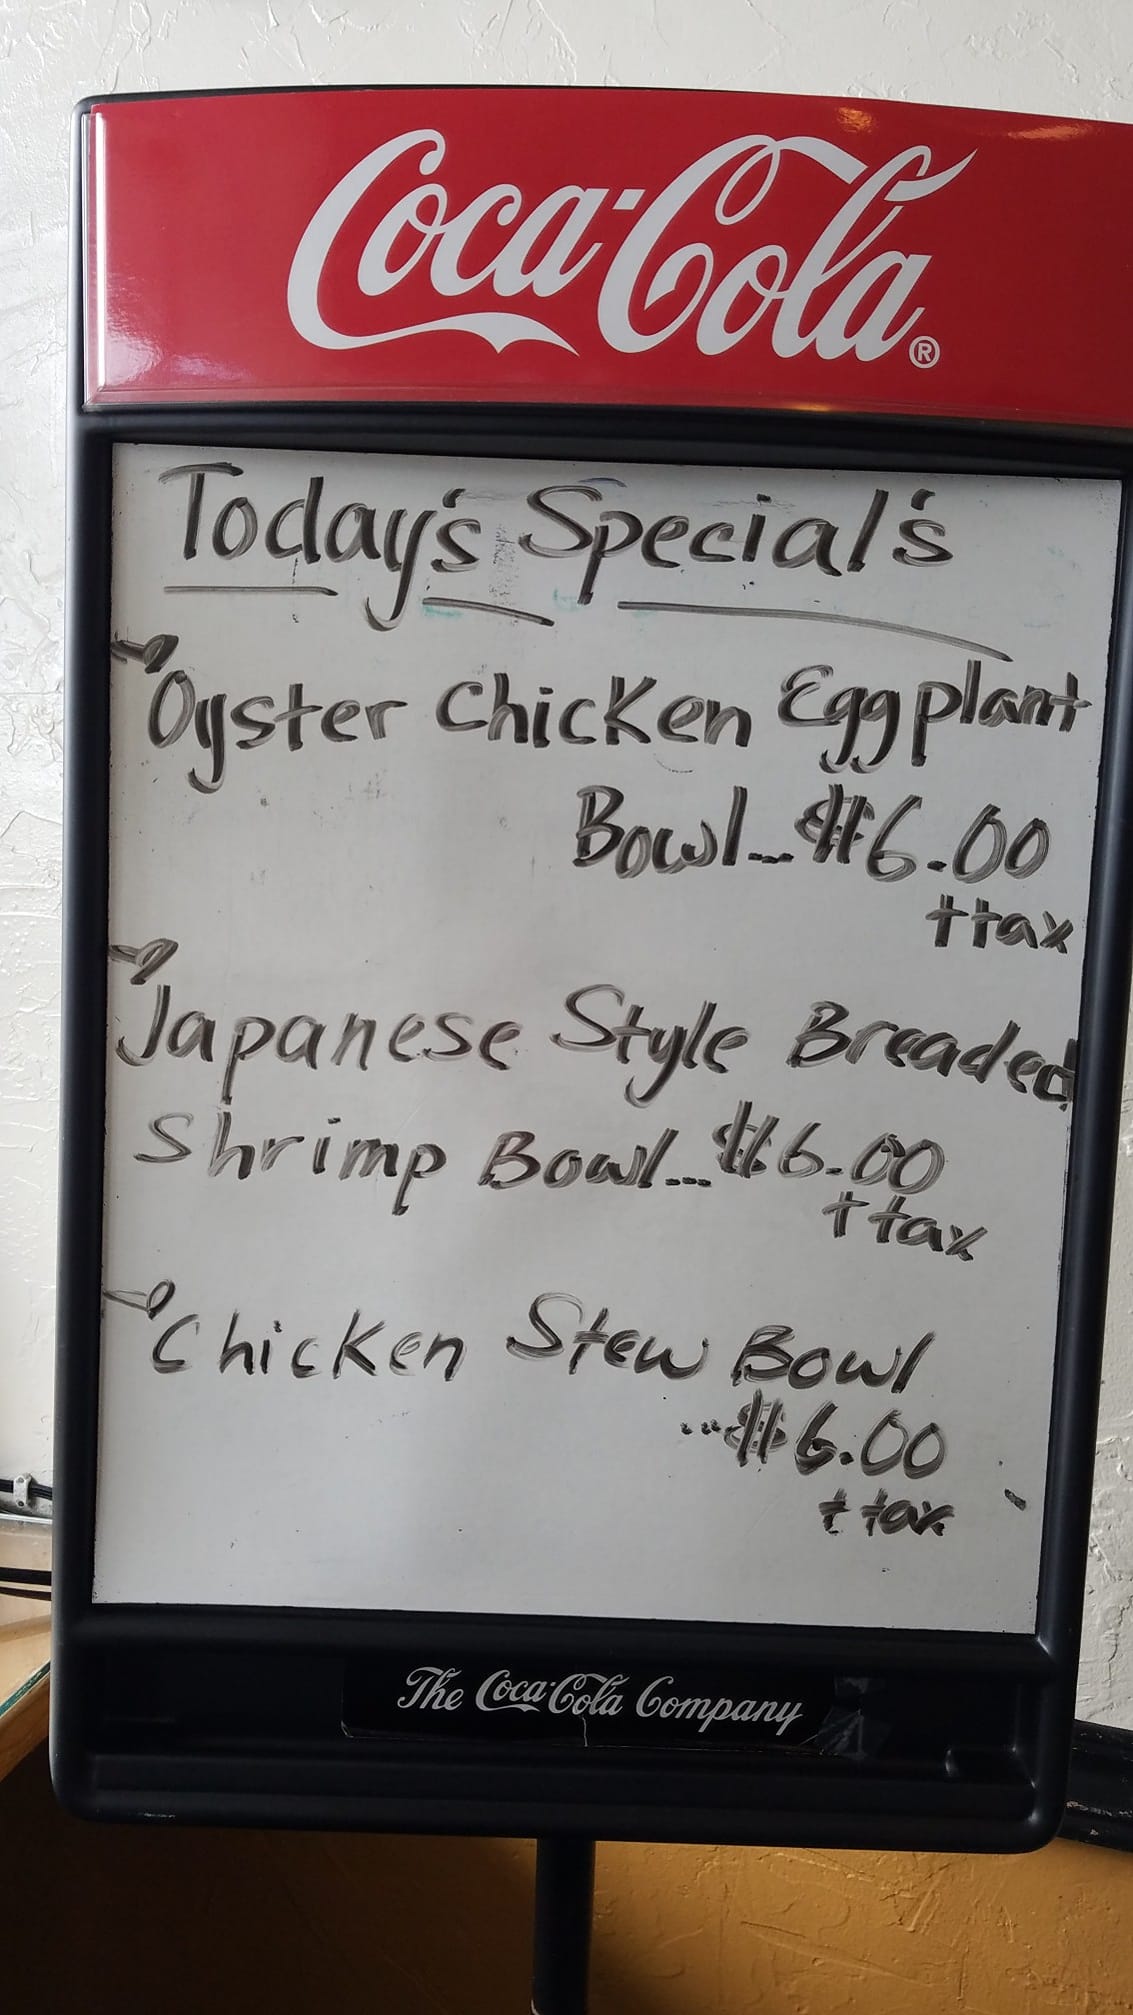 Coca-Cola®
Today's Special's
Oyster Chicken Eggplant
Bowl...$6.00
+tax
Japanese Style Breaded
Shrimp Bowl...$6.00
+tax
Chicken Stew Bowl
...$6.00
+tax
The Coca-Cola Company